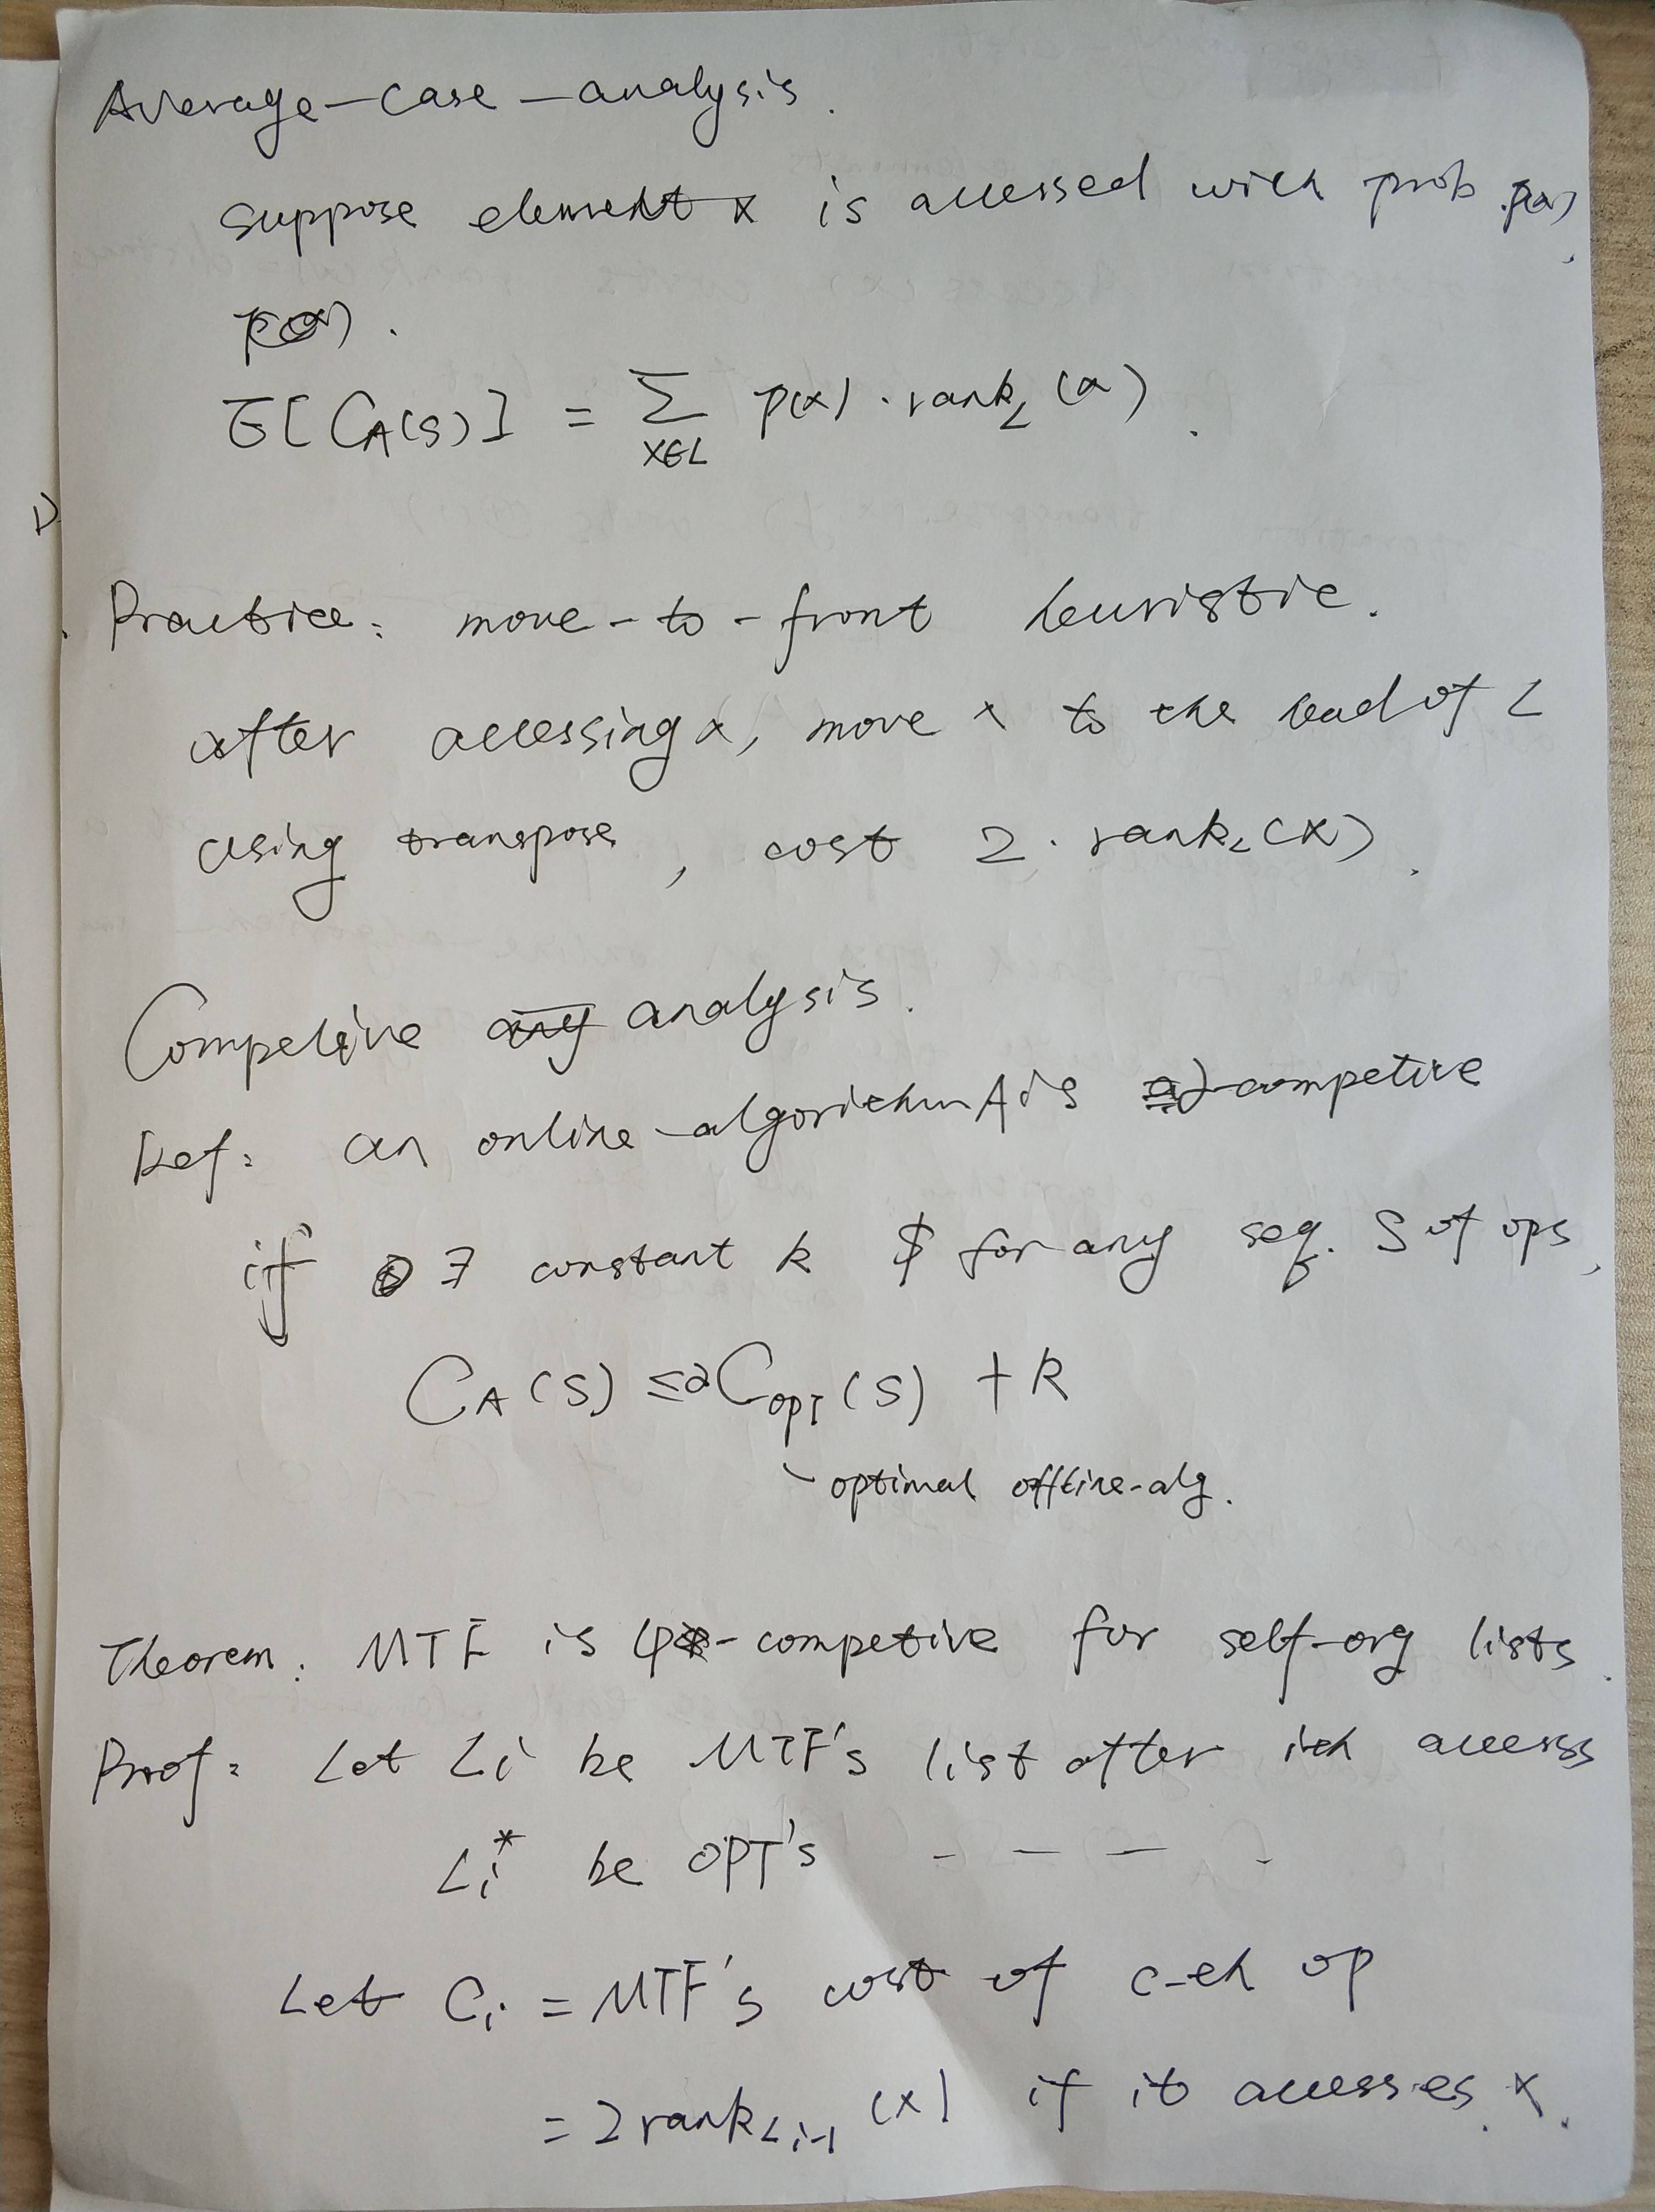 Average-case-analysis.
suppose element x is accessed with prob p(x),
p(x).
E[C_A(S)] = Σ_{x∈L} p(x) · rank_L (x).
Practice: move-to-front heuristic.
after accessing x, move x to the head of L
using transpose, cost 2 · rank_L (x).
Competive any analysis.
Def: an online-algorithm A is α-competive
if ∃ constant k $ for any seq. S of ops,
C_A (S) ≤ α C_OPT (S) + k
optimal offline-alg.
Theorem: MTF is 4-competive for self-org lists.
Proof: Let L_i be MTF's list after ith access
L_i^* be OPT's - - - -
Let C_i = MTF's cost of c-th op
= 2 rank_{L_{i-1}} (x) if it accesses x.